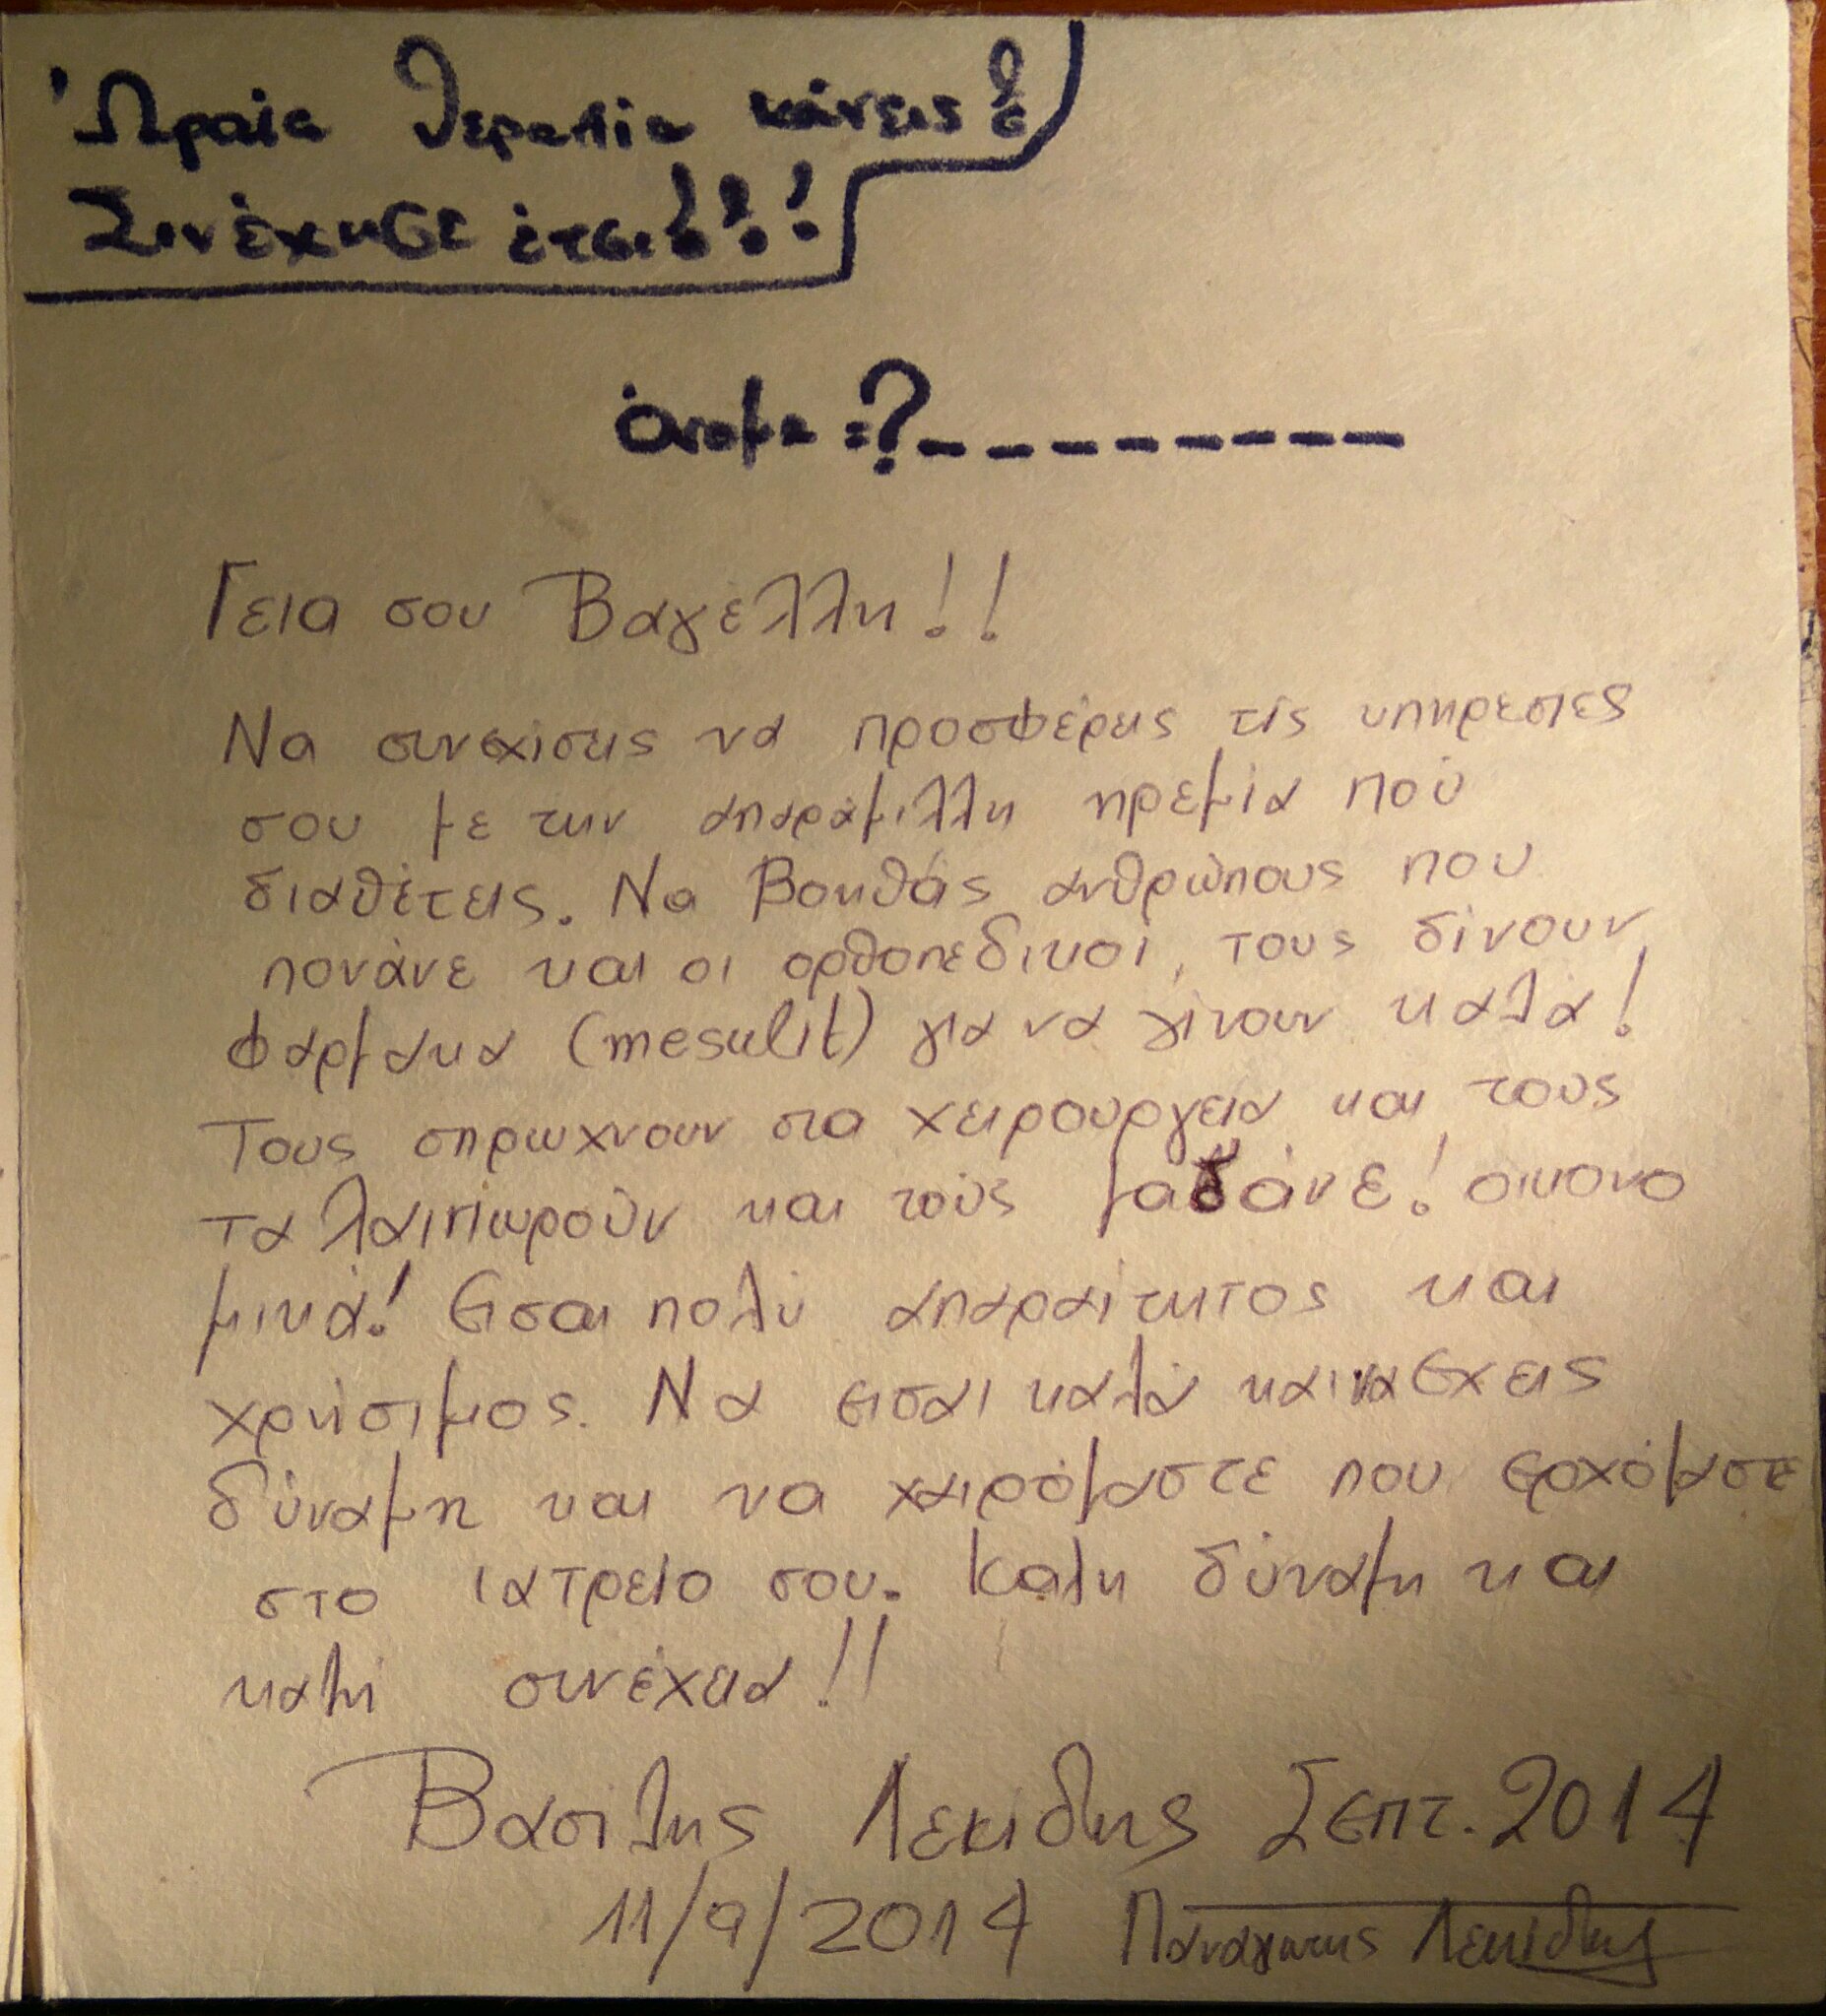 Ωραία θεραπία κάνεις!
Συνέχησε έτσι!!!
Όνομα :?_ _ _ _ _ _ _ _
Γεια σου Βαγελλη!!
Να συνεχισεις να προσφέρεις τίς υπηρεσιες
σου με την απαράμιλλη ηρεμία πού
διαθέτεις. Να Βοηθάς ανθρώπους που
πονάνε και οι ορθοπεδικοί, τους δίνουν
φαρμακα (mesulit) για να γίνουν καλά!
Τους σπρωχνουν στα χειρουργεια και τους
ταλαιπωρούν και τούς μαδάνε! οικονο
μικά! Εισαι πολύ απαραίτητος και
χρήσιμος. Να εισαι καλά και να Εχεις
δύναμη και να χαιρόμαστε που ερχόμαστε
στο ιατρείο σου. Καλη δύναμη και
καλή συνέχεια!!
Βασιλης Λεκιδης Σεπτ. 2014
11/9/2014 Παναγιωτης Λεκιδης